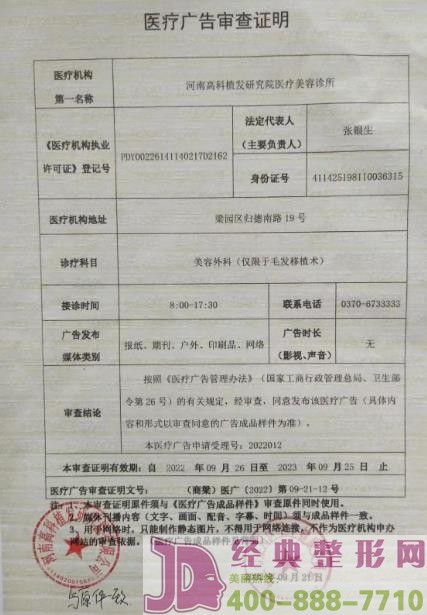 医疗广告审查证明
医疗机构
第一名称
河南高科植发研究院医疗美容诊所
《医疗机构执业
许可证》登记号
PDY00226141140217D2162
法定代表人
（主要负责人）
张银生
身份证号
411425198110036315
医疗机构地址
梁园区归德南路19号
诊疗科目
美容外科（仅限于毛发移植术）
接诊时间
8:00-17:30
联系电话
0370-6733333
广告发布
媒体类别
报纸、期刊、户外、印刷品、网络
广告时长
（影视、声音）
无
审查结论
按照《医疗广告管理办法》（国家工商行政管理总局、卫生部
令第26号）的有关规定，经审查，同意发布该医疗广告（具体内
容和形式以审查同意的广告成品样件为准）。
本医疗广告申请受理号：2022012
本审查证明有效期：自 2022 年 09 月 26 日至 2023 年 09 月 25 日 止
医疗广告审查证明文号： （商梁）医广〔2022〕第 09-21-12 号
注：1、本审查证明原件须与《医疗广告成品样件》审查原件同时使用。
2、媒体刊播内容（文字、画面、配音、字幕、时间）须与成品样件一致。
3、用于网络时，只能制作静态图片，不得用于网络连接，不作为医疗机构申办
网站的审查依据。（医疗广告成品样件见背面）
09月21日
与原件一致
经典整形网
美丽热线：
400-888-7710